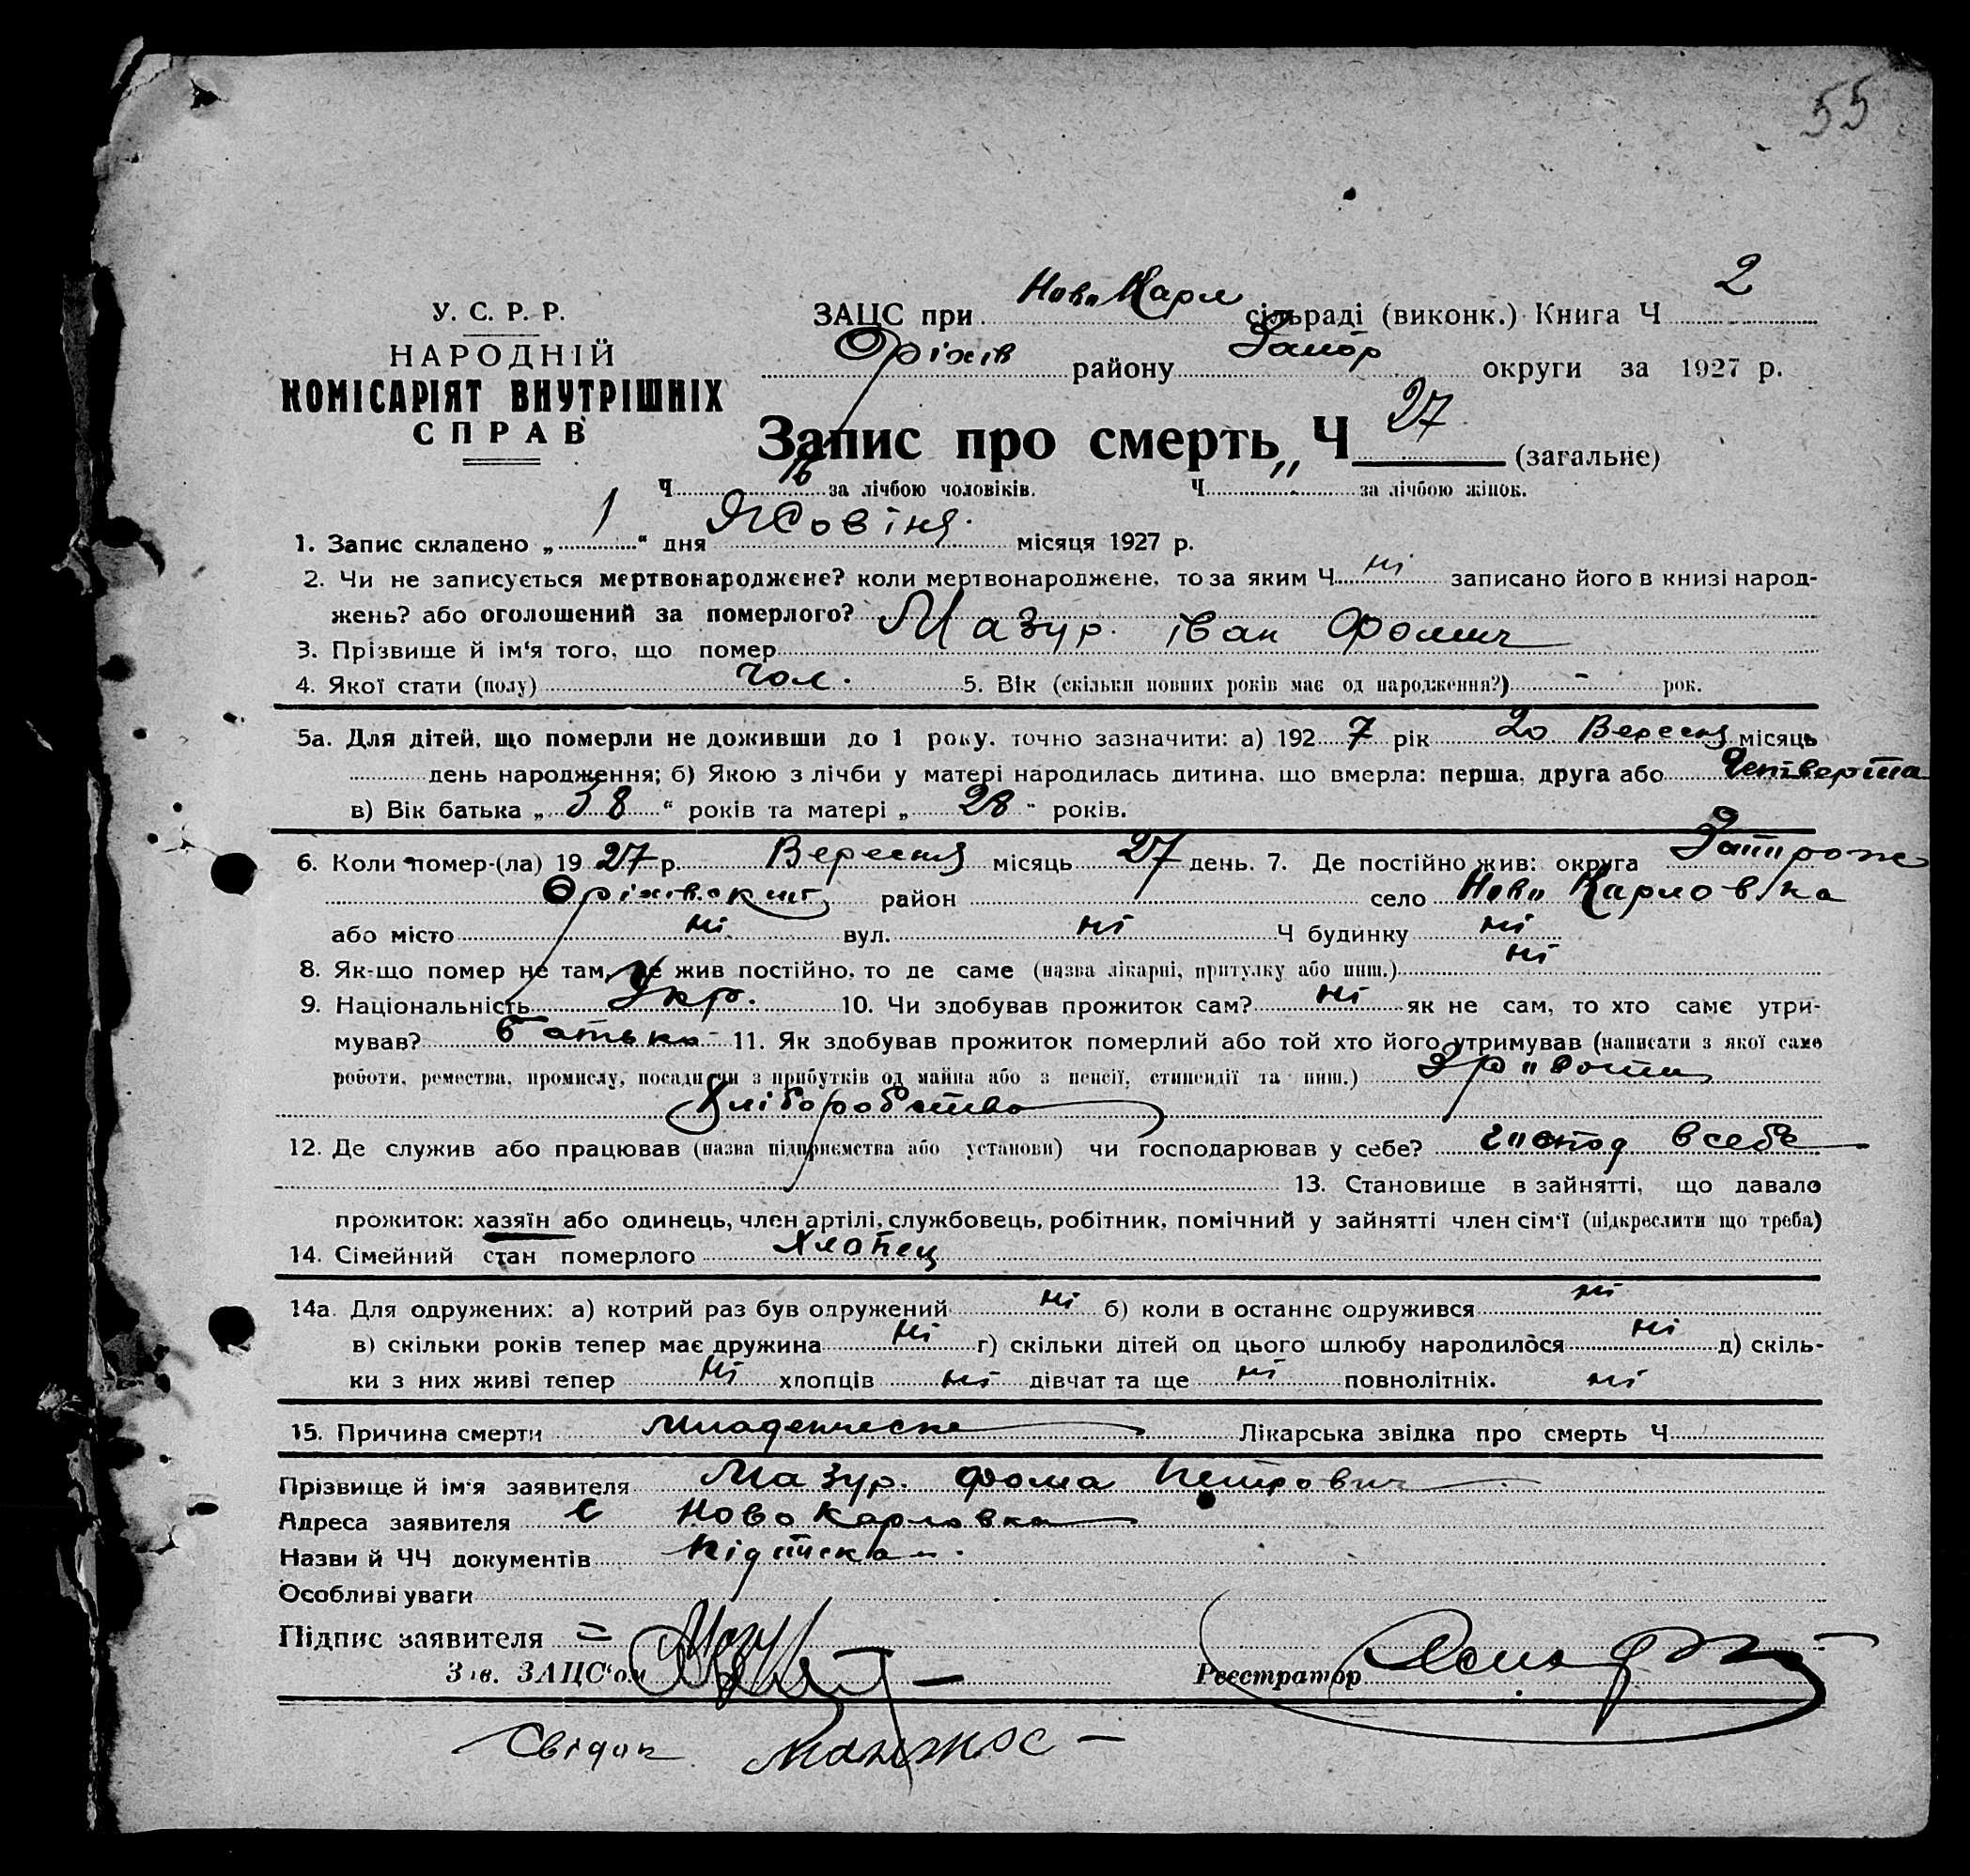 55
У. С. Р. Р.
НАРОДНІЙ
КОМІСАРІЯТ ВНУТРІШНІХ
СПРАВ
ЗАЦС при Ново Карл сільраді (виконк.) Книга Ч 2
Оріхів району Запор округи за 1927 р.
Запис про смерть Ч 27 (загальне)
Ч 16 за лічбою чоловіків. Ч " за лічбою жінок.
1. Запис складено „ 1 “ дня Жовтня місяця 1927 р.
2. Чи не записується мертвонароджене? коли мертвонароджене, то за яким Ч ні записано його в книзі народ-
жень? або оголошений за померлого?
3. Прізвище й ім‘я того, що помер Мазур Іван Фомич
4. Якої стати (полу) чол. 5. Вік (скільки повних років має од народження?) - рок.
5а. Для дітей, що померли не доживши до 1 року, точно зазначити: а) 192 7 рік 20 Вересня місяць
день народження; б) Якою з лічби у матері народилась дитина, що вмерла: перша, друга або Четверта
в) Вік батька „ 38 “ років та матері „ 28 “ років.
6. Коли помер-(ла) 19 27 р. Вересня місяць 27 день. 7. Де постійно жив: округа Запорож
Оріхівский район село Ново Карловка
або місто ні вул. ні Ч будинку ні
8. Як-що помер не там, де жив постійно, то де саме (назва лікарні, притулку або инш.) ні
9. Національність Укр. 10. Чи здобував прожиток сам? ні як не сам, то хто саме утри-
мував? батько 11. Як здобував прожиток померлий або той хто його утримував (написати з якої саме
роботи, ремества, промислу, посади чи з прибутків од майна або з пенсії, стипендії та инш.) З роботи
Хліборобство
12. Де служив або працював (назва підприємства або установи) чи господарював у себе? Господ в себе
13. Становище в зайнятті, що давало
прожиток: хазяїн або одинець, член артілі, службовець, робітник, помічний у зайнятті член сім‘ї (підкреслити що треба)
14. Сімейний стан померлого Хлопец
14а. Для одружених: а) котрий раз був одружений ні б) коли в останнє одружився ні
в) скільки років тепер має дружина ні г) скільки дітей од цього шлюбу народилося ні д) скіль-
ки з них живі тепер ні хлопців ні дівчат та ще ні повнолітніх. ні
15. Причина смерти младенческа Лікарська звідка про смерть Ч
Прізвище й ім‘я заявителя Мазур Фома Петрович
Адреса заявителя С Ново Карловка
Назви й ЧЧ документів
Особливі уваги
Підпис заявителя
Зав. ЗАЦС‘ом Реєстратор
Свідок